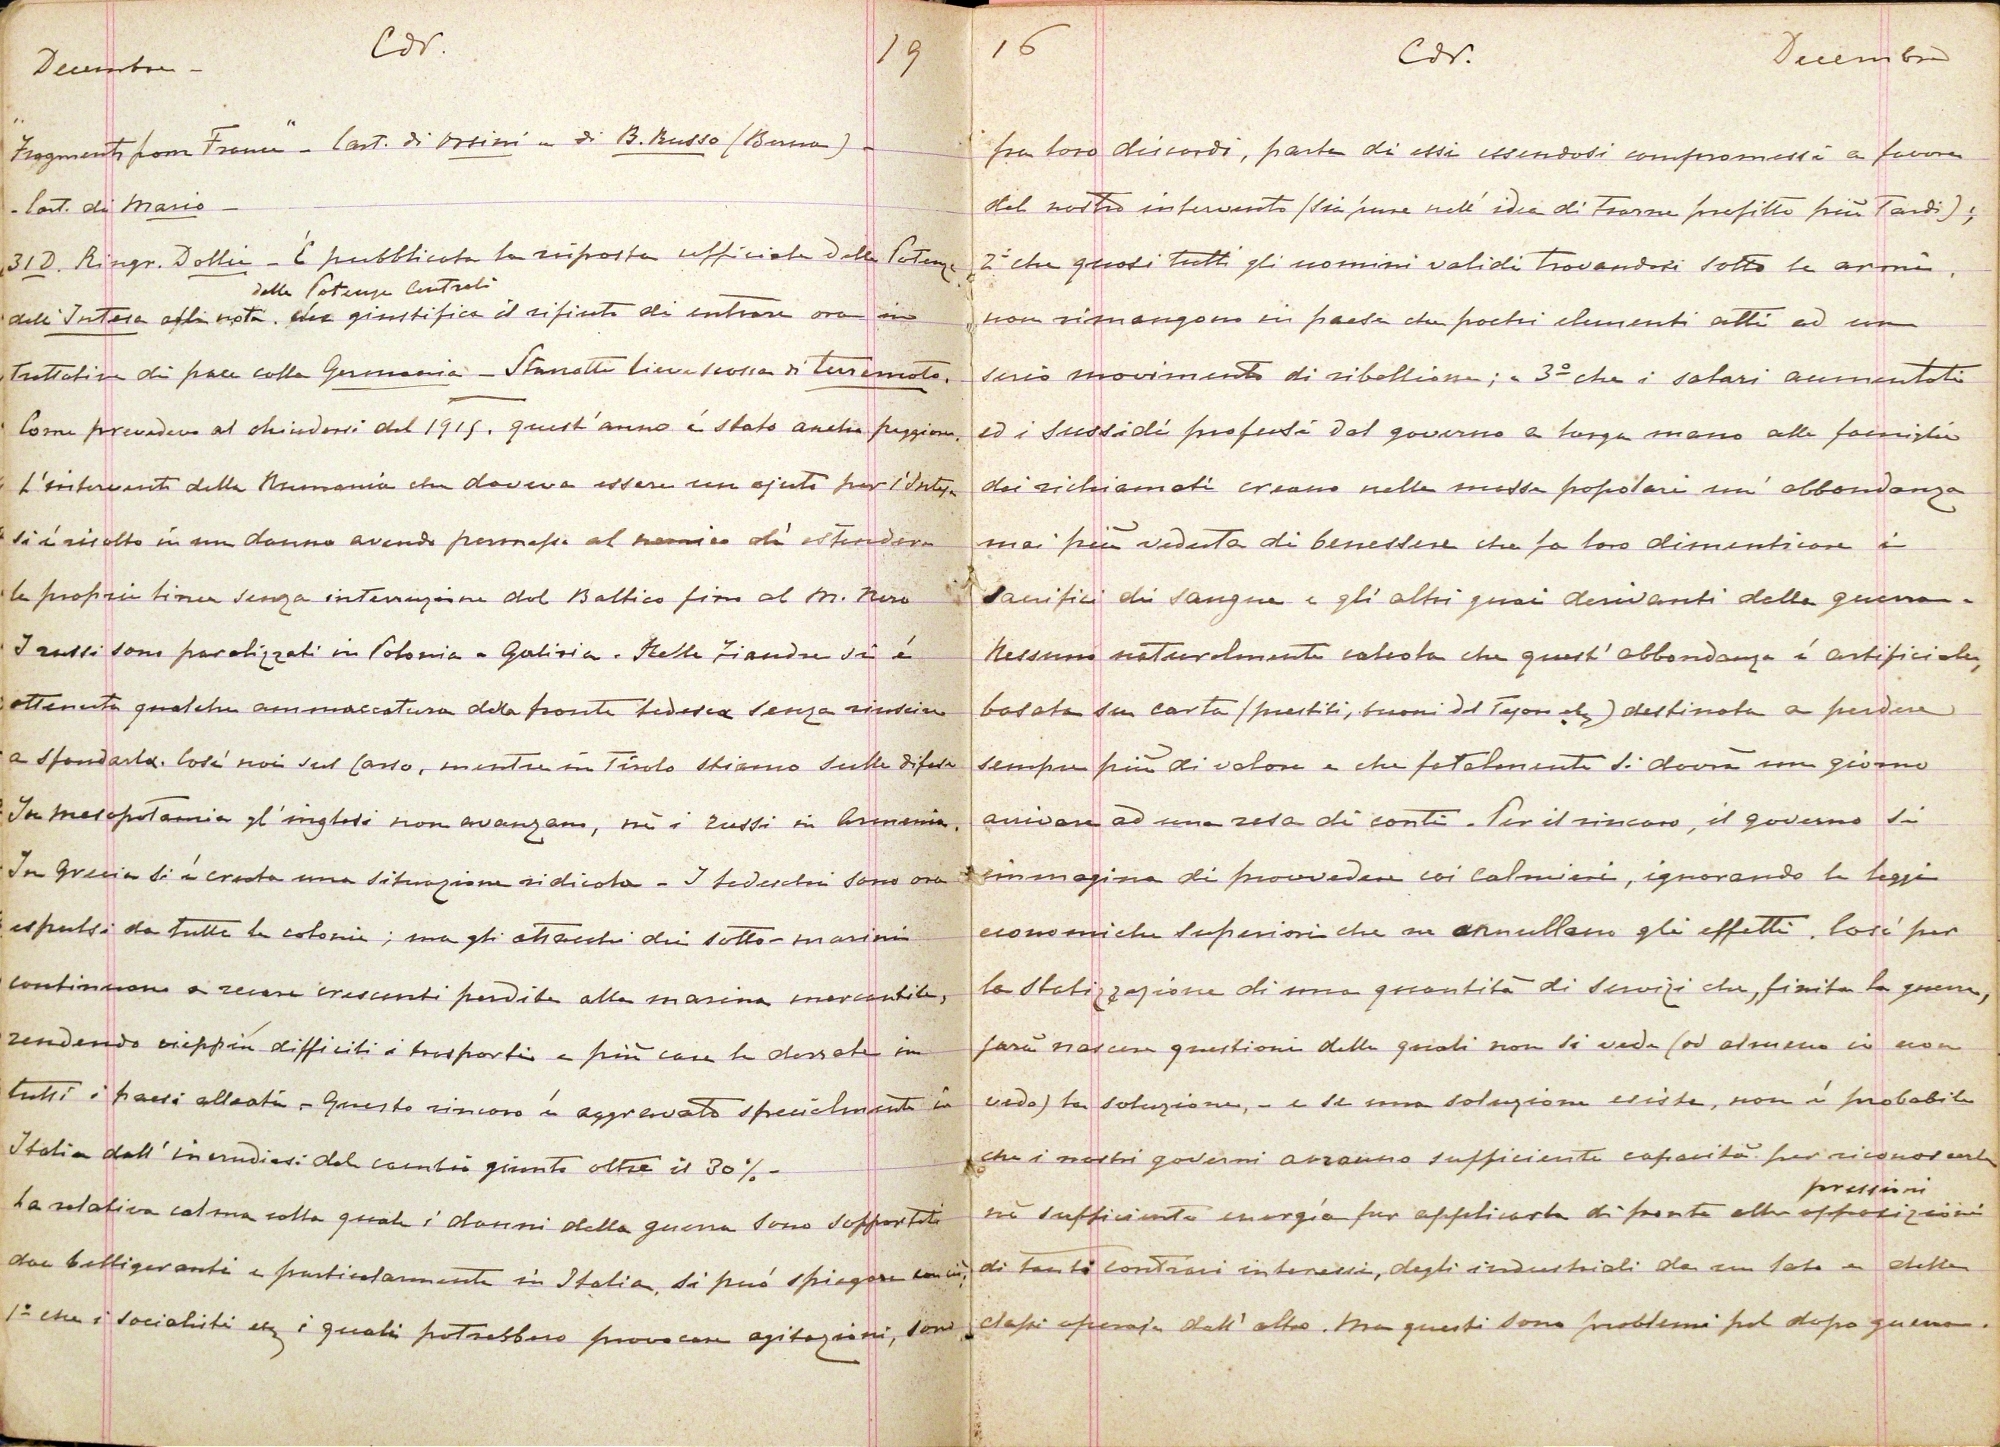 Decembre - Cdr. 19
"Fragments from France" - Cart. di Orsini e di B. Russo (Berna) -
- Cart. di Mario -
31 D. Ringr. Dollie - È pubblicata la risposta ufficiale delle Potenze
delle Potenze Centrali
dell'Intesa alla nota. che giustifica il rifiuto di entrare ora in
trattative di pace colla Germania - Stanotte lieve scossa di terremoto.
Come prevedevo al chiudersi del 1915. quest'anno è stato anche peggiore.
L'intervento della Rumania che doveva essere un ajuto per l'Intesa
si è risolto in un danno avendo permesso al nemico di estendere
la propria linea senza interruzione dal Baltico fino al M. Nero
I russi sono paralizzati in Polonia e Galizia. Nelle Fiandre si è
ottenuta qualche ammaccatura della fronte tedesca senza riuscire
a sfondarla. Così noi sul Carso, mentre in Tirolo stiamo sulle difese
In Mesopotamia gl'inglesi non avanzano, nè i russi in Armenia.
In Grecia si è creata una situazione ridicola - I tedeschi sono ora
espulsi da tutte le colonie; ma gli attacchi dei sotto-marini
continuano a recare crescenti perdite alla marina mercantile,
rendendo vieppiù difficili i trasporti e più care le derrate in
tutti i paesi alleati - Questo rincaro è aggravato specialmente in
Italia dall'incrudirsi del cambio giunto oltre il 30% -
La relativa calma colla quale i danni della guerra sono sopportati
dai belligeranti e particolarmente in Italia, si può spiegare con ciò;
1º che i socialisti etc i quali potrebbero provocare agitazioni, sono
16 Cdr. Decembre
fra loro discordi, parte di essi essendosi compromessi a favore
del nostro intervento (sia pure nell'idea di trarne profitto più tardi);
2º che quasi tutti gli uomini validi trovandosi sotto le armi,
non rimangono in paese che pochi elementi atti ad un
serio movimento di ribellione; e 3º che i salari aumentati
ed i sussidi profusi dal governo a larga mano alle famiglie
dei richiamati creano nelle masse popolari un'abbondanza
mai più veduta di benessere che fa loro dimenticare i
sacrifici di sangue e gli altri guai derivanti dalla guerra -
Nessuno naturalmente calcola che quest'abbondanza è artificiale,
basata su carta (prestiti, buoni del Tesoro etc) destinata a perdere
sempre più di valore e che fatalmente si dovrà un giorno
arrivare ad una resa di conti. Per il rincaro, il governo si
immagina di provvedere coi calmieri, ignorando le leggi
economiche superiori che ne annullano gli effetti. Così per
la statizzazione di una quantità di servizi che, finita la guerra,
farà nascere questioni delle quali non si vede (od almeno io non
vedo) la soluzione, - e se una soluzione esiste, non è probabile
che i nostri governi avranno sufficiente capacità per riconoscerla
pressioni
nè sufficiente energia per applicarla di fronte alle opposizioni
di tanti contrari interessi, degli industriali da un lato e delle
classi operaje dall'altro. Ma questi sono problemi pel dopo guerra.